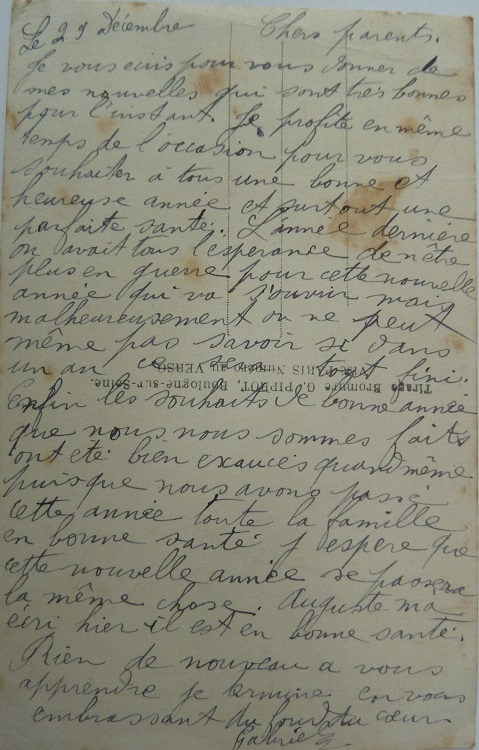 Le 29 Décembre Chers parents.
Je vous ecris pour vous donner de
mes nouvelles qui sont très bonnes
pour l'instant. Je profite en même
temps de l'occasion pour vous
souhaiter à tous une bonne et
heureuse année et surtout une
parfaite santé. L'année dernière
on avait tous l'espérance de n'être
plus en guerre pour cette nouvelle
année qui va s'ouvrir mais
malheureusement on ne peut
même pas savoir si dans
un an ce sera tout fini.
Tirage Bromure G. PIPROT, Boulogne-sur-Seine.
PARIS Numéro au VERSO
Enfin les souhaits de bonne année
que nous nous sommes faits
ont été bien exaucés quand même
puisque nous avons passé
cette année toute la famille
en bonne santé j'espère que
cette nouvelle année se passera
la même chose. Auguste ma
écri hier il est en bonne santé.
Rien de nouveau a vous
apprendre je termine en vous
embrassant du fond du cœur
Gabriel